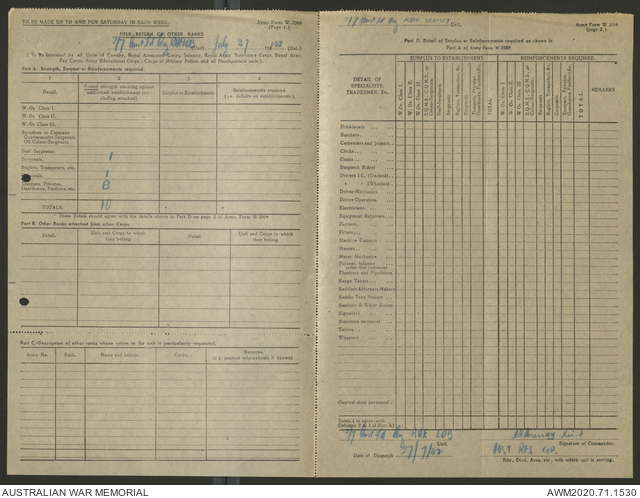 TO BE MADE UP TO AND FOR SATURDAY IN EACH WEEK.
Army Form W.3009
(Page 1.)
FIELD RETURN OF OTHER RANKS
(Unit) July 27 (Date)
(To be furnished by all Units of Cavalry, Royal Armoured Corps, Infantry, Royal Army Veterinary Corps, Royal Army
Pay Corps, Army Educational Corps, Corps of Military Police, and all Headquarters units.)
Part A. Strength, Surplus or Reinforcements required.
1 2 3 4
Detail.
Posted strength counting against authorized establishment (excluding attached)
Surplus to Establishment.
Reinforcements required (i.e. deficits on establishment).
W.Os. Class I.
W.Os. Class II.
W.Os. Class III.
Squadron or Company
Quartermaster-Sergeants
OR Colour-Sergeants
Staff Sergeants
Sergeants, 1
Buglers, Trumpeters, etc.
1
Troopers, Privates, 8
Guardsmen, Fusiliers, etc.
TOTALS. 10
These Totals should agree with the details shown in Part D on page 2 of Army Form W.3009
Part B. Other Ranks attached from other Corps.
Detail.
Unit and Corps to which they belong.
Detail.
Unit and Corps to which they belong.
Part C.-Description of other ranks whose return to the unit is particularly requested.
Army No.
Rank.
Name and Initials.
Corps.
Remarks.
(e.g. present whereabouts if known).
Unit.
Army Form W.3009
(Page 2.)
Part D. Detail of Surplus or Reinforcements required as shown in
Part A of Army Form W.3009
SURPLUS TO ESTABLISHMENT
REINFORCEMENTS REQUIRED.
DETAIL OF
SPECIALISTS,
TRADESMEN, Etc.
W.Os. Class I.
W.Os. Class II.
W.Os. Class III.
Sergeants.
TOTAL
W.Os. Class I.
W.Os. Class II.
W.Os. Class III.
Sergeants.
TOTAL.
REMARKS
Bricklayers
Butchers
Carpenters and Joiners
Clerks
Cooks
Despatch Riders
Drivers I.C. (Tracked)
" " (Wheeled)
Driver-Mechanics
Driver-Operators
Electricians
Equipment Repairers
Farriers
Fitters
Machine Gunners
Masons
Motor Mechanics
Pioneer, Infantry
Plumbers and Pipefitters
Range Takers
Saddlers
Saddle Tree Makers
Sanitary & Water Duties
Signallers
Storemen technical
Tailors
Wheelers
General duty personnel
Totals (to agree with
Columns 3 & 4 of Part A)
Unit.
Signature of Commander.
Date of Despatch
Bde., Divn., Area, etc., with which unit is serving.
AUSTRALIAN WAR MEMORIAL
AWM2020.71.1530